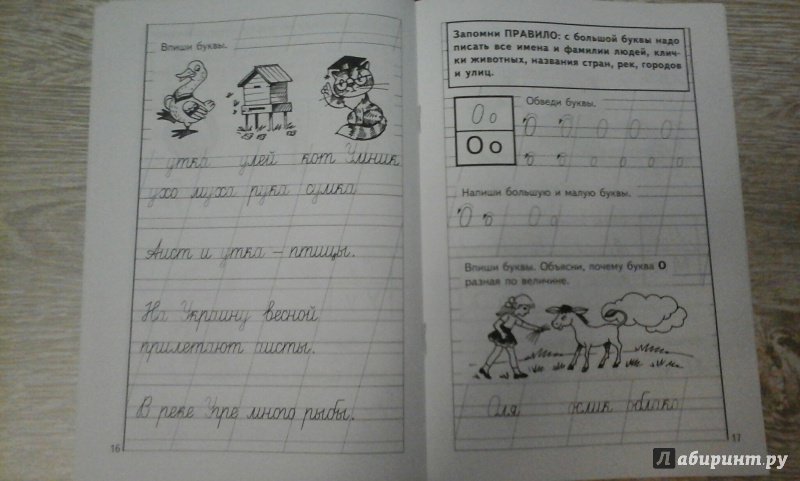 Впиши буквы.
утка улей кот Умник
ухо муха рука сумка
Аист и утка – птицы.
На Украину весной
прилетают аисты.
В реке Упре много рыбы.
16
Запомни ПРАВИЛО: с большой буквы надо
писать все имена и фамилии людей, клич-
ки животных, названия стран, рек, городов
и улиц.
О о
О о
Обведи буквы.
О О О О О
о о о о о о
Напиши большую и малую буквы.
О о О о
Впиши буквы. Объясни, почему буква О
разная по величине.
Оля ослик облако
17
Лабиринт.ру